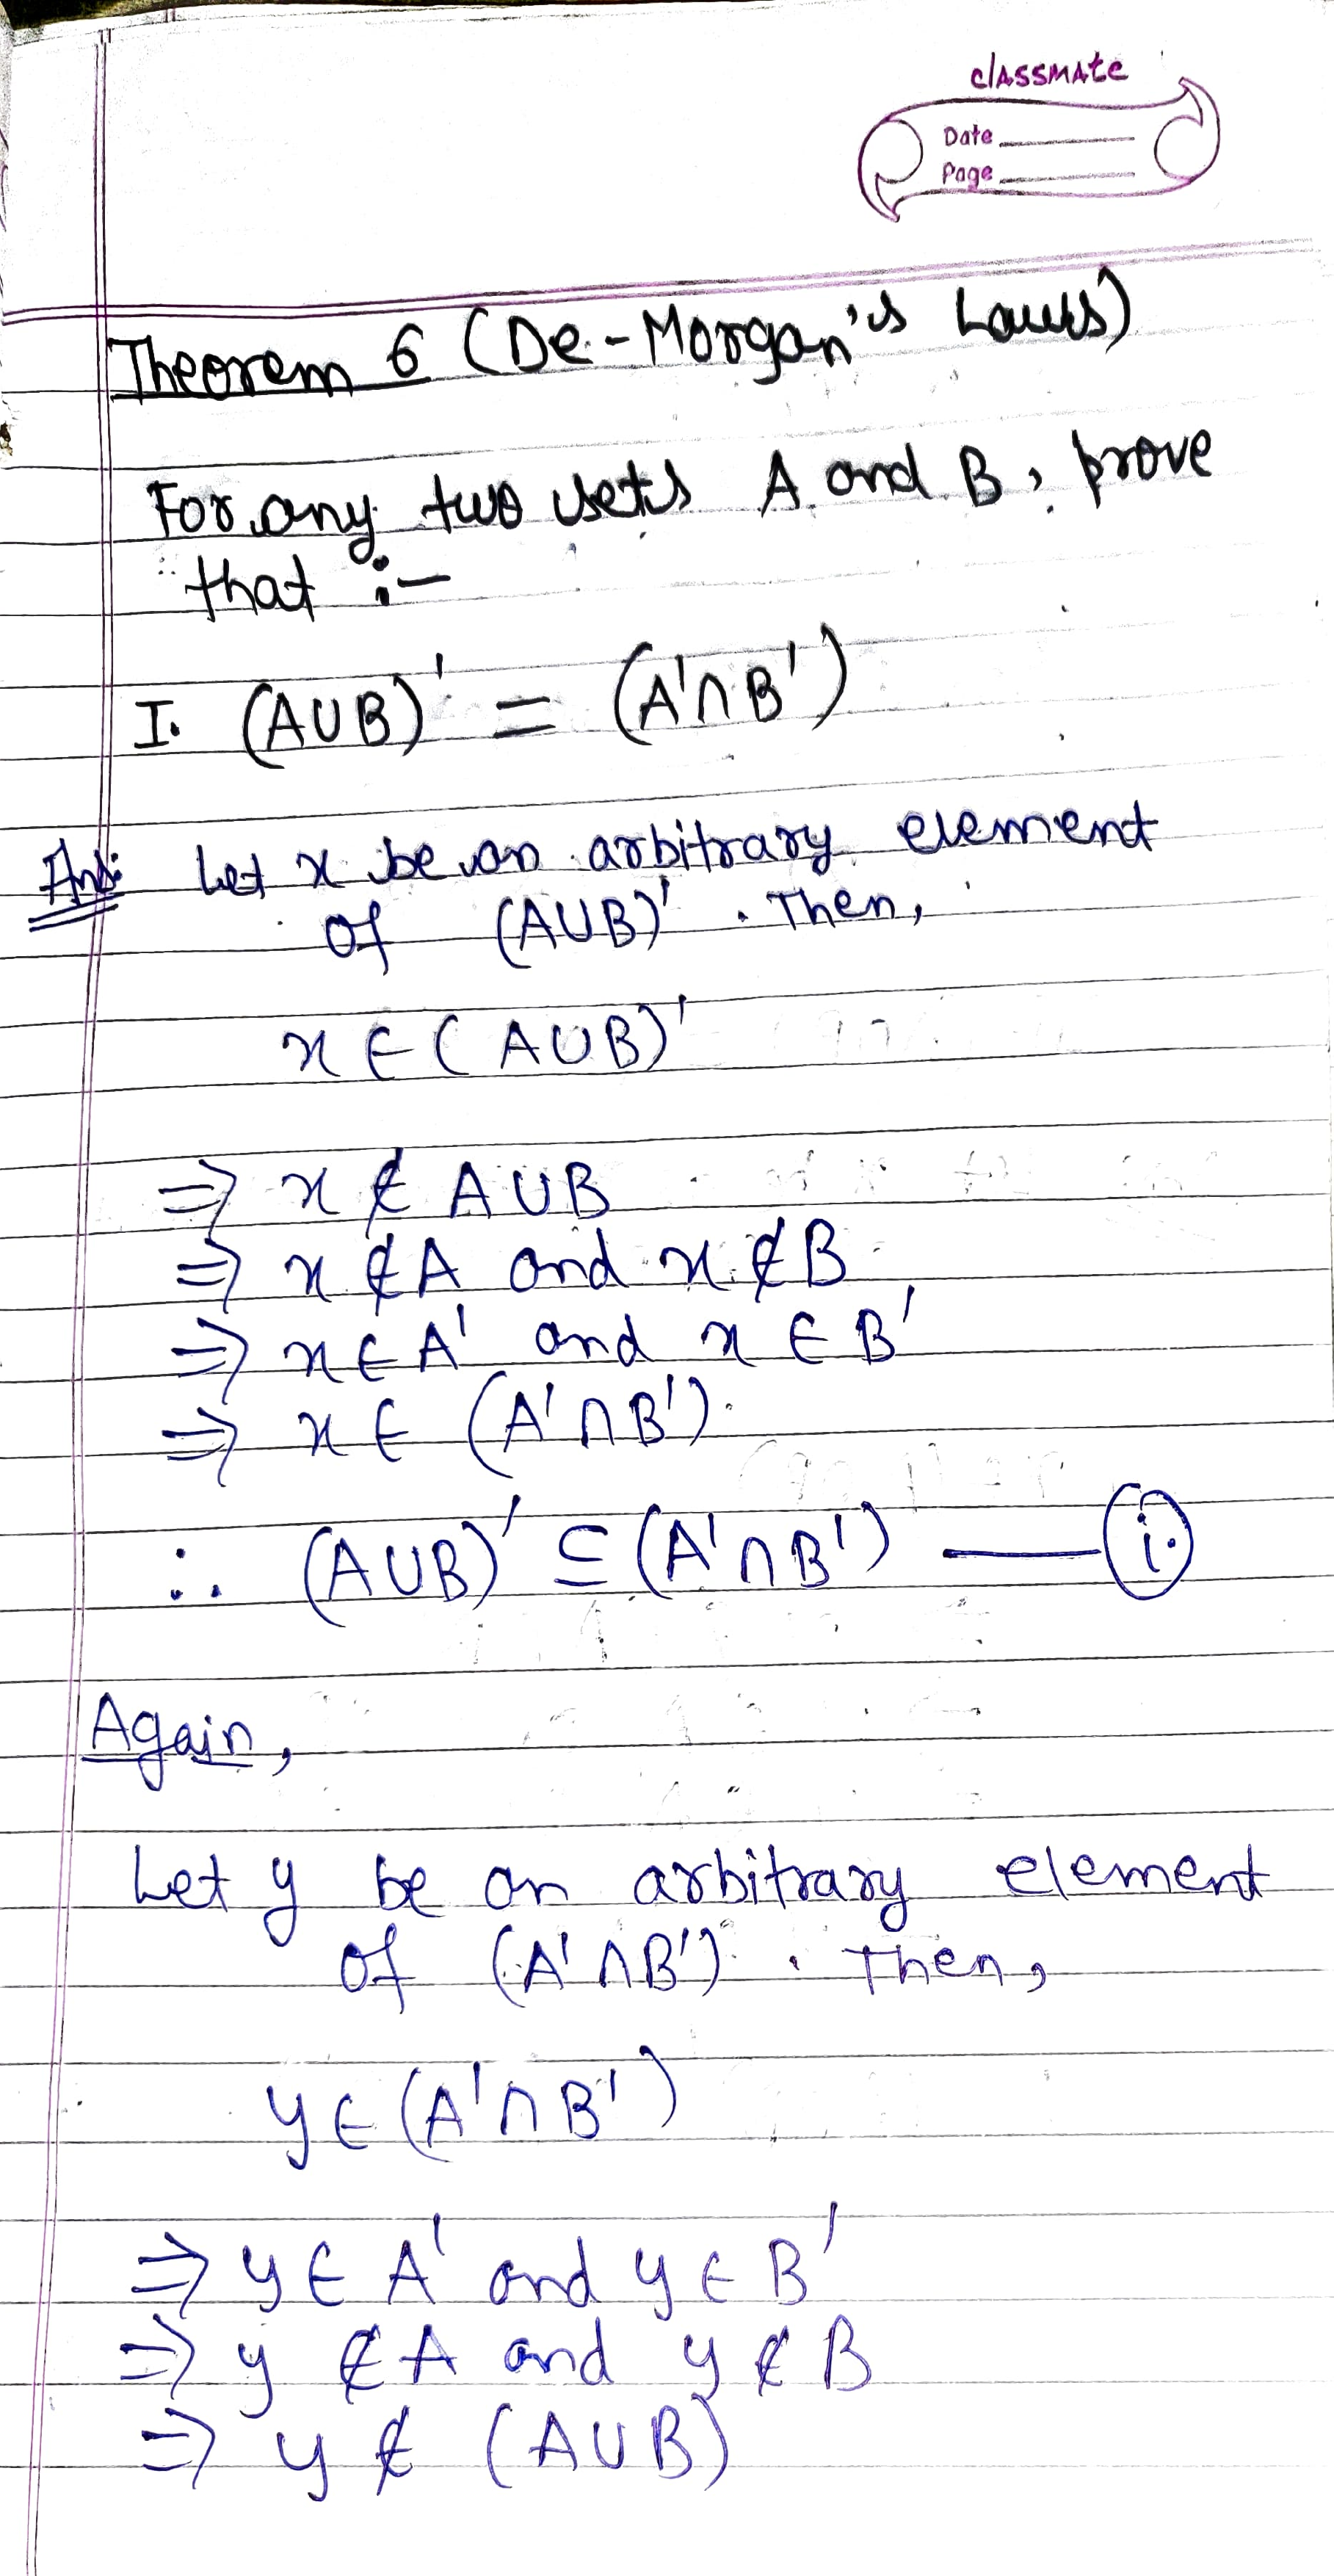 classmate
Date
Page
Theorem 6 (De-Morgan's Laws)
For any two sets A and B, prove
that :-
I. (A∪B)' = (A'∩B')
Ans: Let x be an arbitrary element
of (A∪B)'. Then,
x ∈ (A∪B)'
⇒ x ∉ A∪B
⇒ x ∉ A and x ∉ B
⇒ x ∈ A' and x ∈ B'
⇒ x ∈ (A'∩B').
∴ (A∪B)' ⊆ (A'∩B') — (i.)
Again,
Let y be an arbitrary element
of (A'∩B'). Then,
y ∈ (A'∩B')
⇒ y ∈ A' and y ∈ B'
⇒ y ∉ A and y ∉ B
⇒ y ∉ (A∪B)